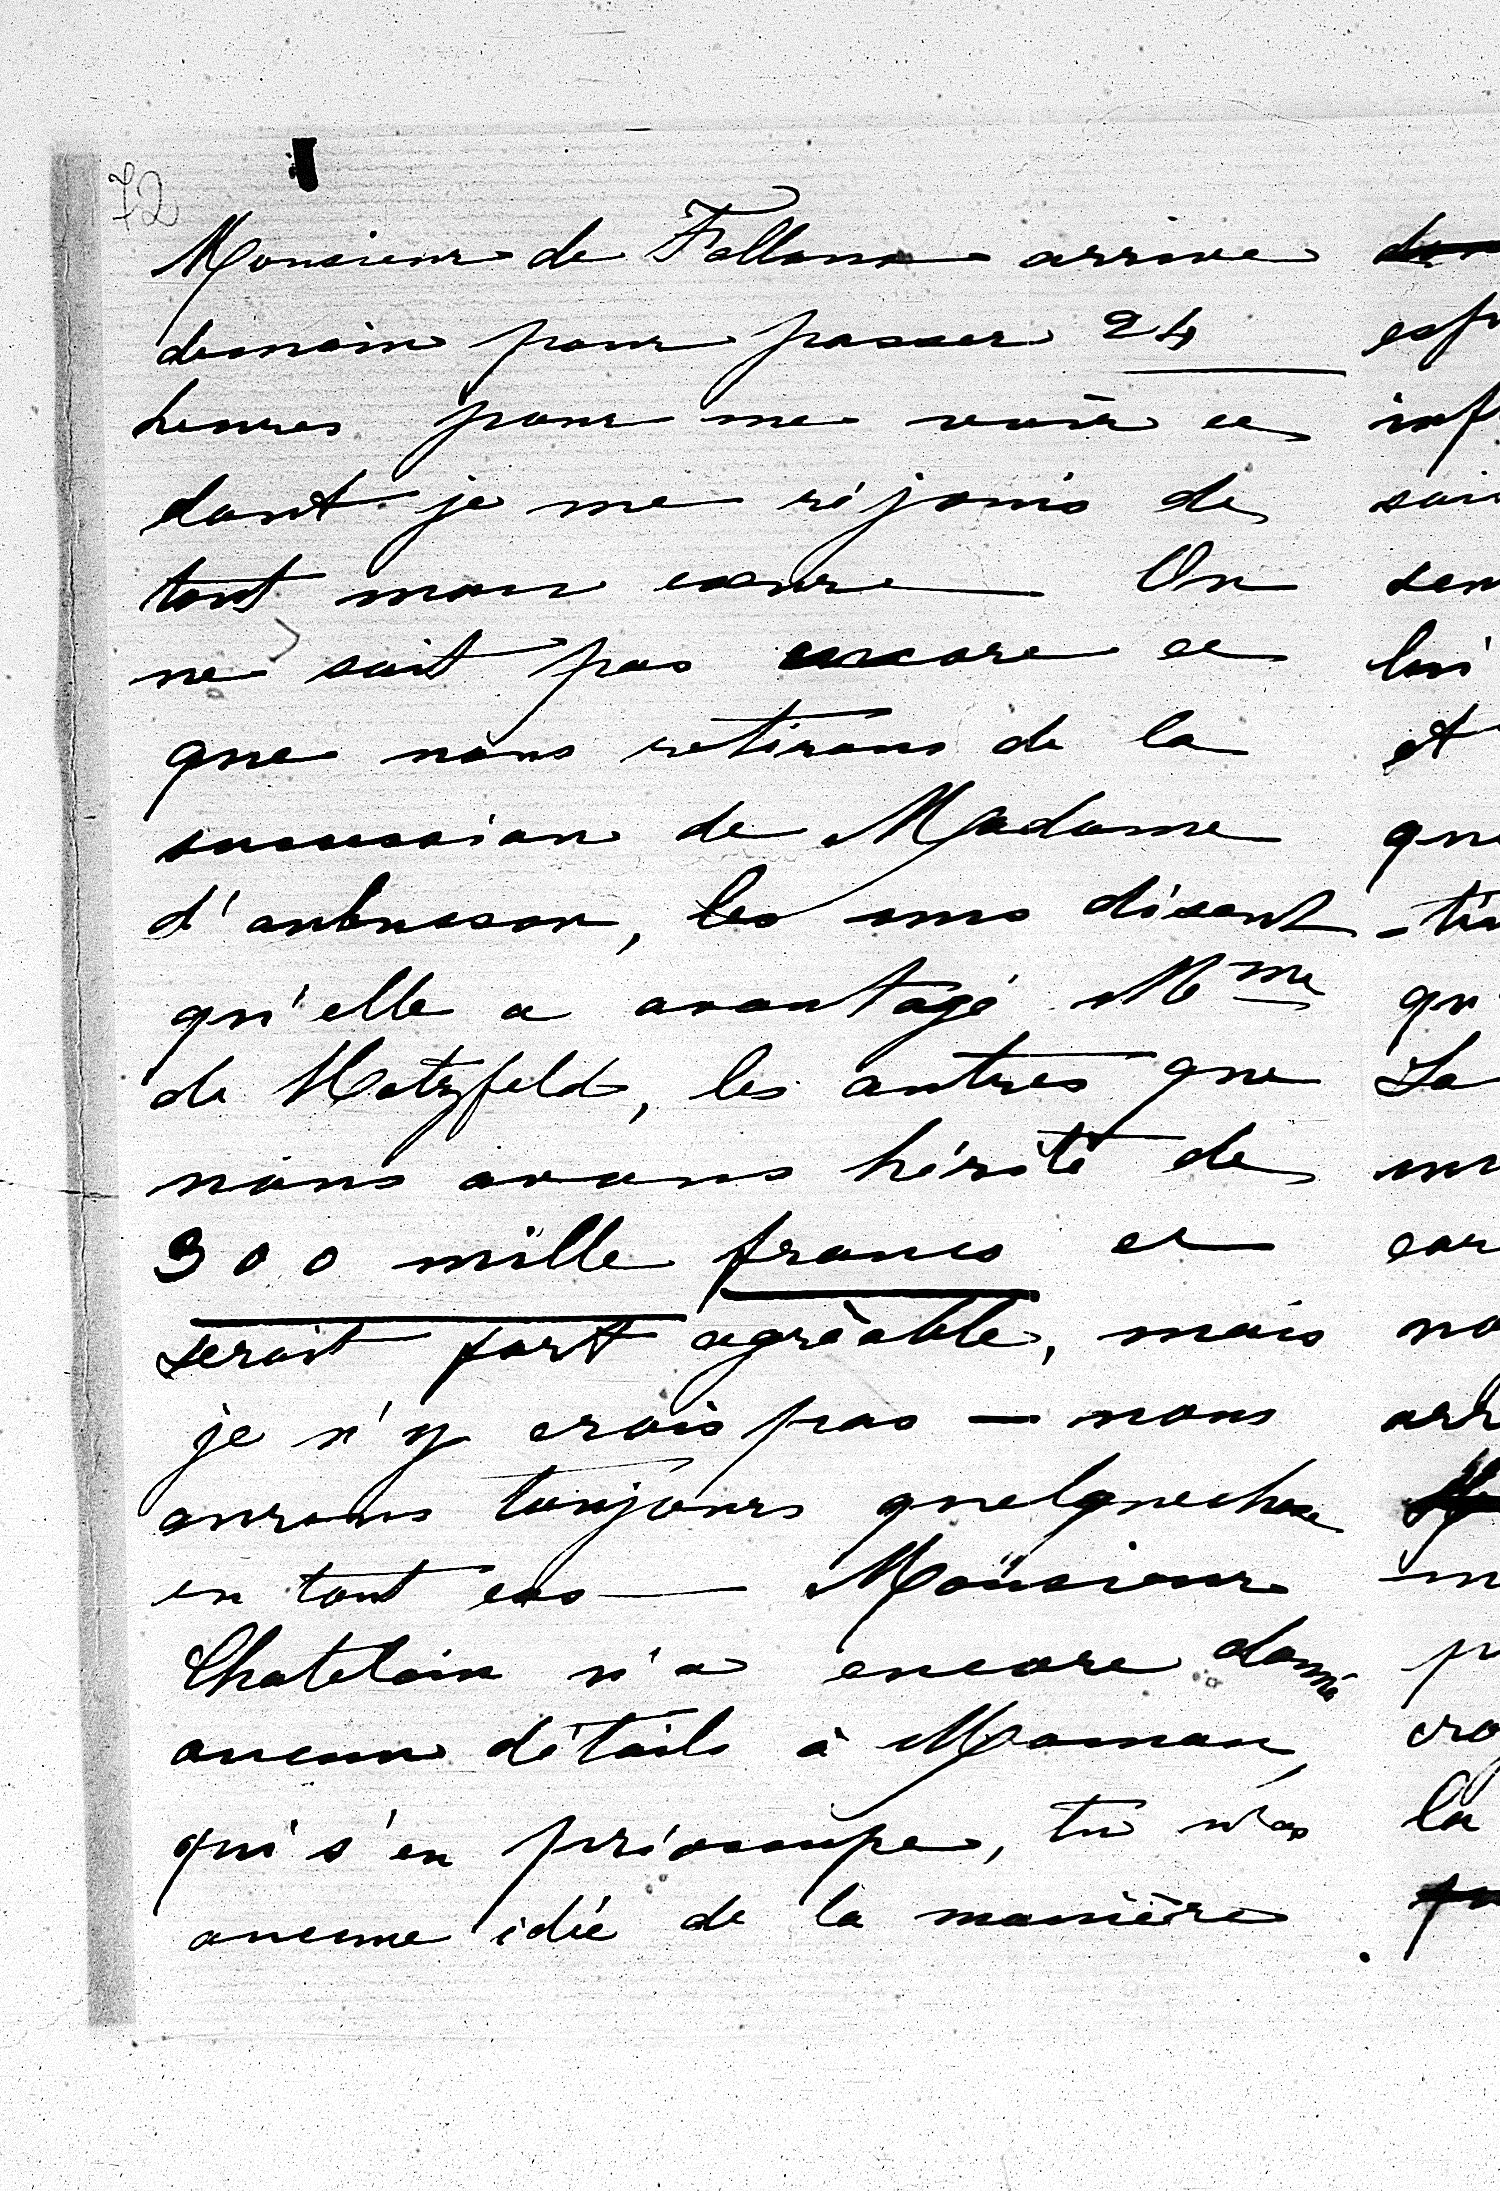 72
Monsieur de Falloux arrive
demain pour passer 24
heures pour me voir ce
dont je me réjouis de
tout mon cœur — On
ne sait pas encore ce
que nous retirons de la
succession de Madame
d'aubusson, les uns disent
qu'elle a avantagé Mme
de Hatzfeld, les autres que
nous avons hérité de
300 mille francs ce
serait fort agréable, mais
je n'y crois pas — nous
aurons toujours quelquechose
en tout cas — Monsieur
Chatelain n'a encore donné
aucun détails à Maman,
qui s'en préoccupe, tu n'as
aucune idée de la manière